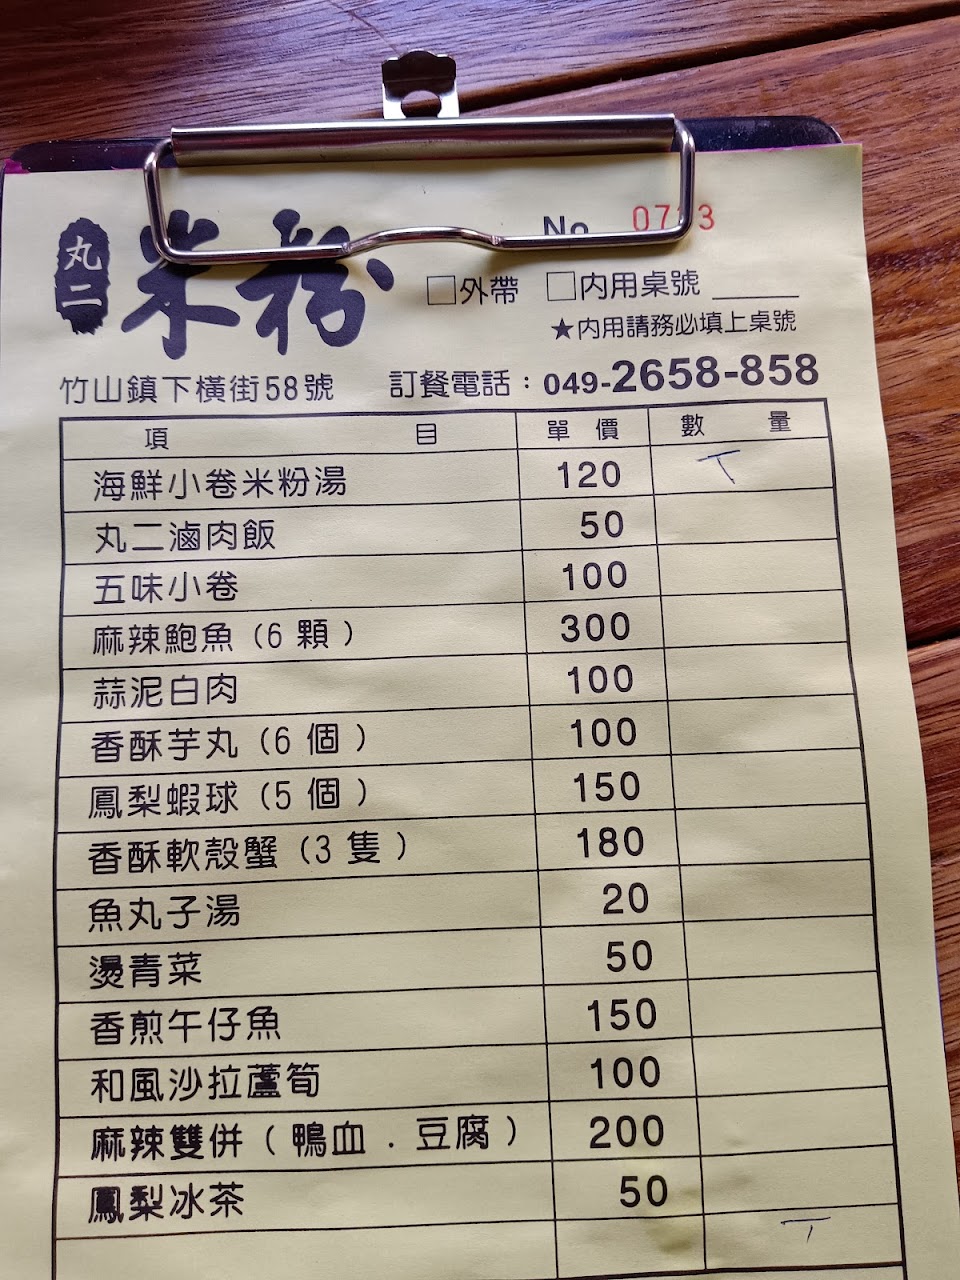 丸二
米粉
No.
□外帶 □內用桌號
★內用請務必填上桌號
竹山鎮下橫街58號 訂餐電話：049-2658-858
項目 單價 數量
海鮮小卷米粉湯 120
丸二滷肉飯 50
五味小卷 100
麻辣鮑魚(6顆) 300
蒜泥白肉 100
香酥芋丸(6個) 100
鳳梨蝦球(5個) 150
香酥軟殼蟹(3隻) 180
魚丸子湯 20
燙青菜 50
香煎午仔魚 150
和風沙拉蘆筍 100
麻辣雙併(鴨血.豆腐) 200
鳳梨冰茶 50